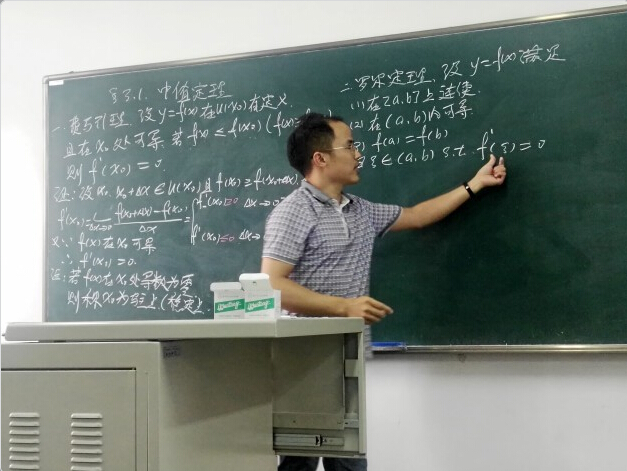 §3.1. 中值定理
一. 费马引理 设 y=f(x) 在 U(x₀) 有定义.
且在 x₀ 处可导. 若 f(x) ≤ f(x₀) (f(x)
则 f'(x₀) = 0.
证: 设 x₀+Δx ∈ U(x₀) 且 f(x₀) ≥ f(x₀+Δx)
f'(x₀) = lim Δx→0 f(x₀+Δx)-f(x₀) / Δx = { f'(x₀) ≥0 Δx→
f'(x₀) ≤0 Δx→0
又∵ f(x) 在 x₀ 可导
∴ f'(x₀) = 0.
注: 若 f(x) 在 x₀ 处导数为零
则称 x₀ 为驻点. (稳定点
二. 罗尔定理. 设 y=f(x) 满足
(1) 在 [a.b] 上连续
(2) 在 (a.b) 内可导.
f(a) = f(b)
ξ ∈ (a.b) s.t. f'(ξ) = 0